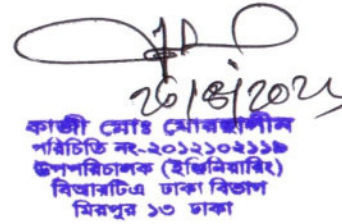 26/8/202
কাজী মোঃ মোরছালীন
পরিচিতি নং-২০১২১০২১১৯
উপপরিচালক (ইঞ্জিনিয়ারিং)
বিআরটিএ ঢাকা বিভাগ
মিরপুর ১৩ ঢাকা